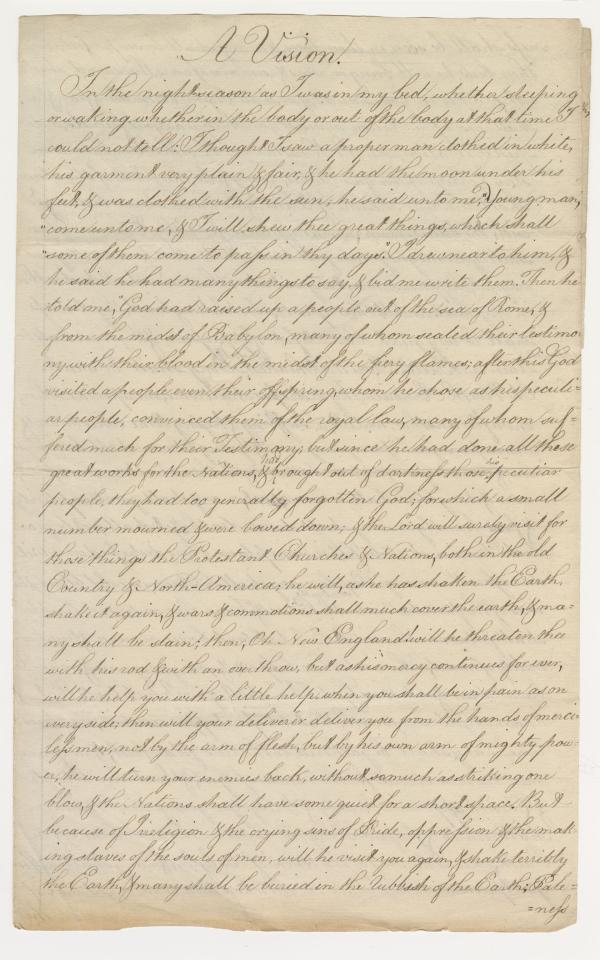 A Vision.
In the night season as I was in my bed, whether sleeping
or waking, whether in the body or out of the body at that time, I
could not tell: I thought I saw a proper man clothed in white,
his garment very plain & fair, & he had the moon under his
feet, & was clothed with the sun; he said unto me, "young man,
"come unto me, & I will shew thee great things, which shall
"some of them come to pass in thy days". I drew near to him, &
he said he had many things to say, & bid me write them. Then he
told me, "God had raised up a people out of the sea of Rome, &
from the midst of Babylon, many of whom sealed their testimo
ny with their blood in the midst of the fiery flames; after this God
visited a people even their offspring, whom he chose as his peculi-
ar people, convinced them of the royal law, many of whom suf-
fered much for their Testimony; but since he had done all these
great works for the Nations, & had brought out of darkness those his peculiar
people, they had too generally forgotten God; for which a small
number mourned & were bowed down; & the Lord will surely visit for
those things the Protestant Churches & Nations, both in the old
Country & North-America; he will, as he has shaken the Earth,
shake it again, & wars & commotions shall much cover the earth, & ma=
ny shall be slain; then, Oh New England! will he threaten thee
with his rod & with an overthrow, but as his mercy continues for ever,
will he help you with a little help, when you shall be in pain as on
every side; then will your deliverer deliver you from the hands of merci
less men, not by the arm of flesh, but by his own arm of mighty pow=
er, he will turn your enemies back, without so much as striking one
blow, & the Nations shall have some quiet for a short space. But
because of Ireligion & the crying sins of Pride, oppression & the mak-
ing slaves of the souls of men, will he visit you again, & shake terribly
the Earth, & many shall be buried in the Rubbish of the Earth: Pale=
=ness